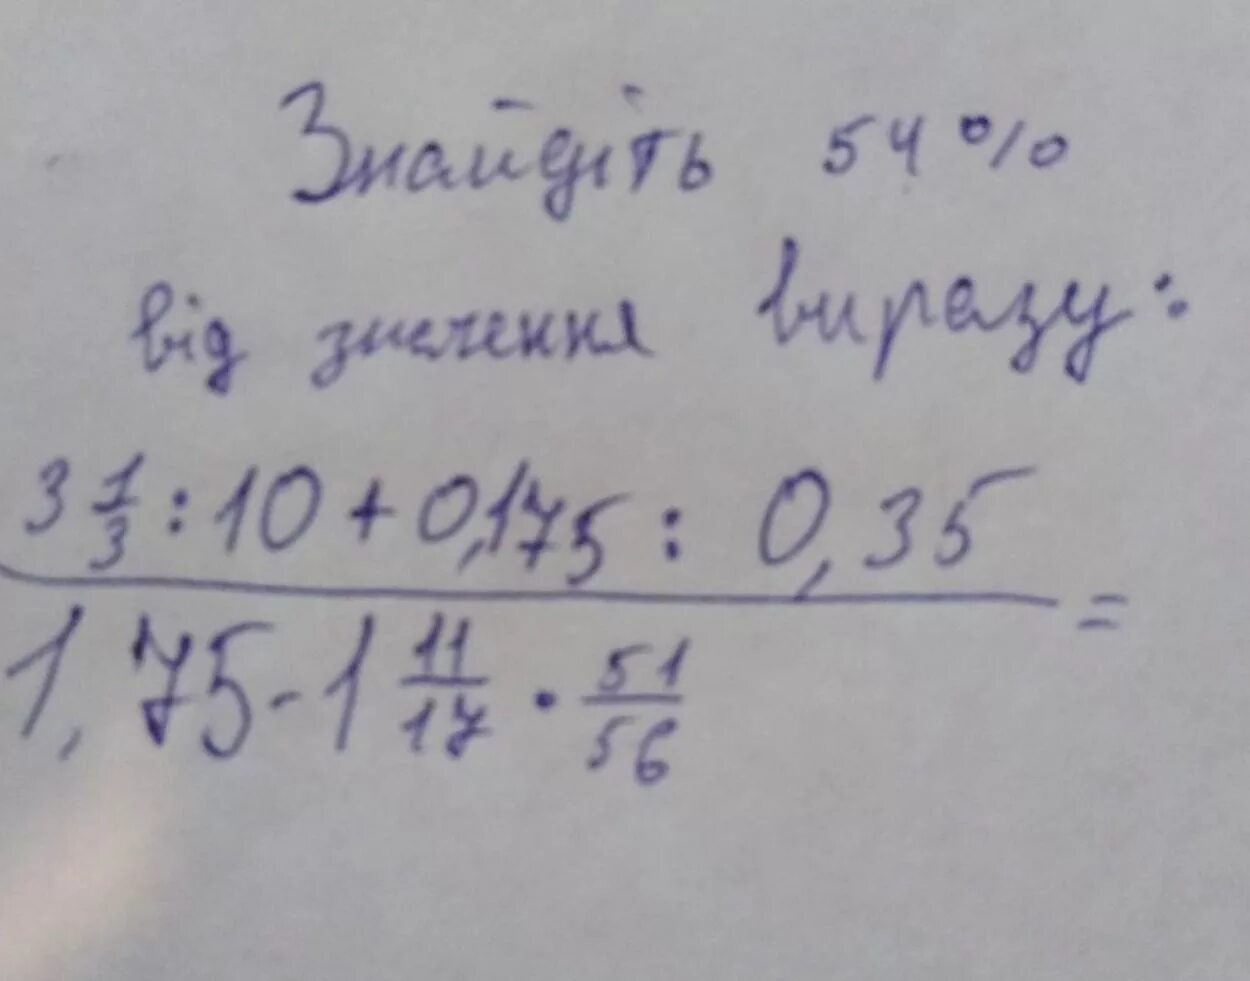 Знайдіть 54%
від значення виразу:
3 1/3 : 10 + 0,175 : 0,35
1,75 - 1 11/17 · 51/56 =